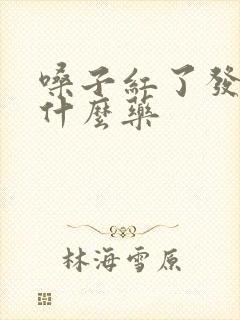 嗓子紅了發
什麼藥
林海雪原